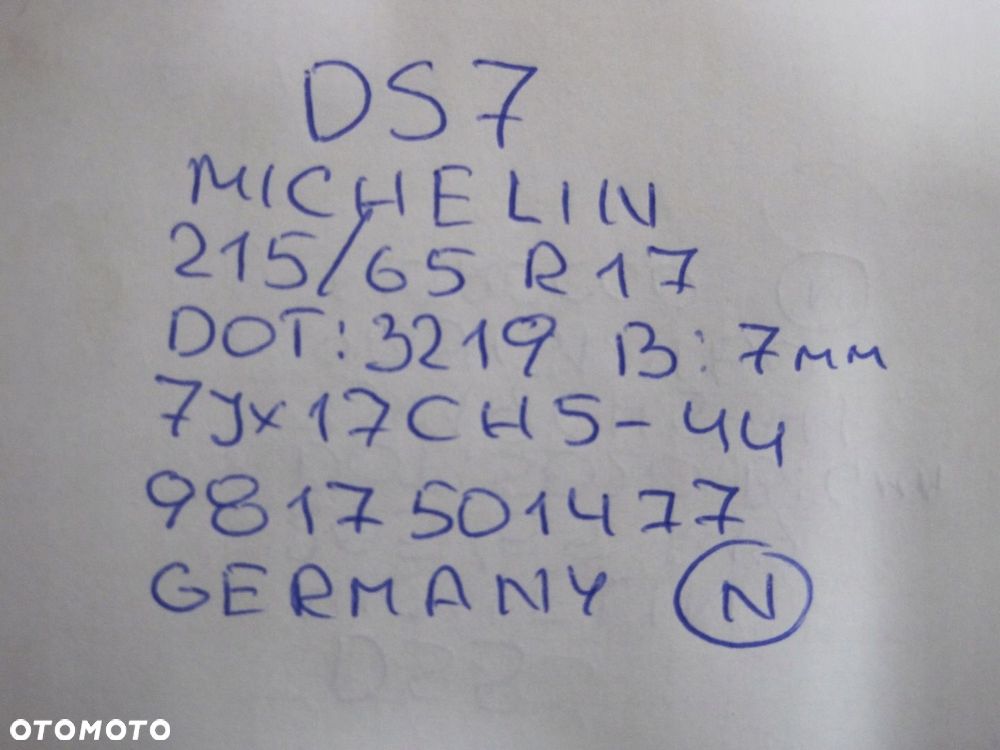 DS7
MICHELIN
215/65 R17
DOT: 3219 B: 7мм
7Jx17CH5-44
9817501477
GERMANY N
OTOMOTO